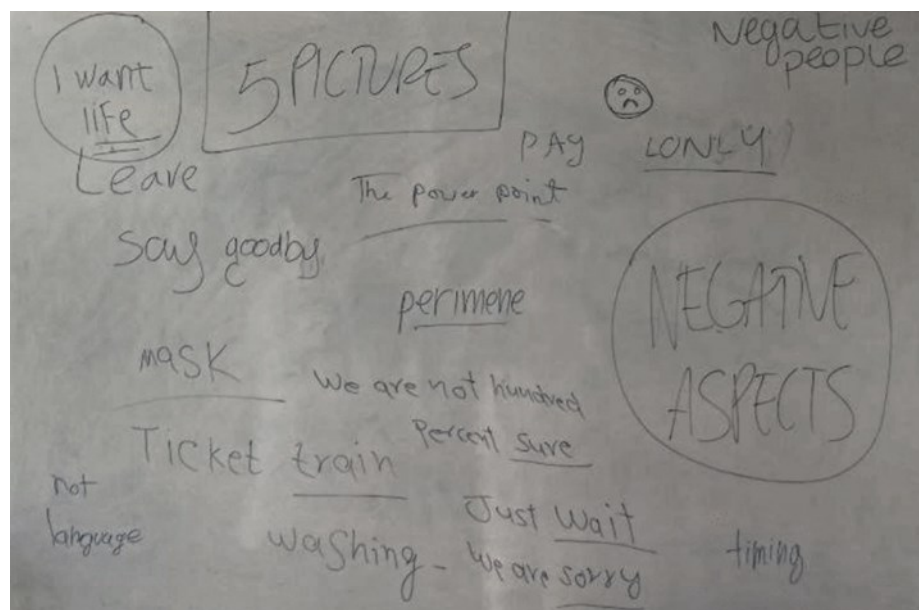 Negative
people
I want
life
5 PICTURES
PAY
LONLY
Leave
The power point
Say goodby
perimene
NEGATIVE
ASPECTS
mask
We are not hundred
percent sure
Ticket train
not
language
Just wait
washing - we are sorry
timing